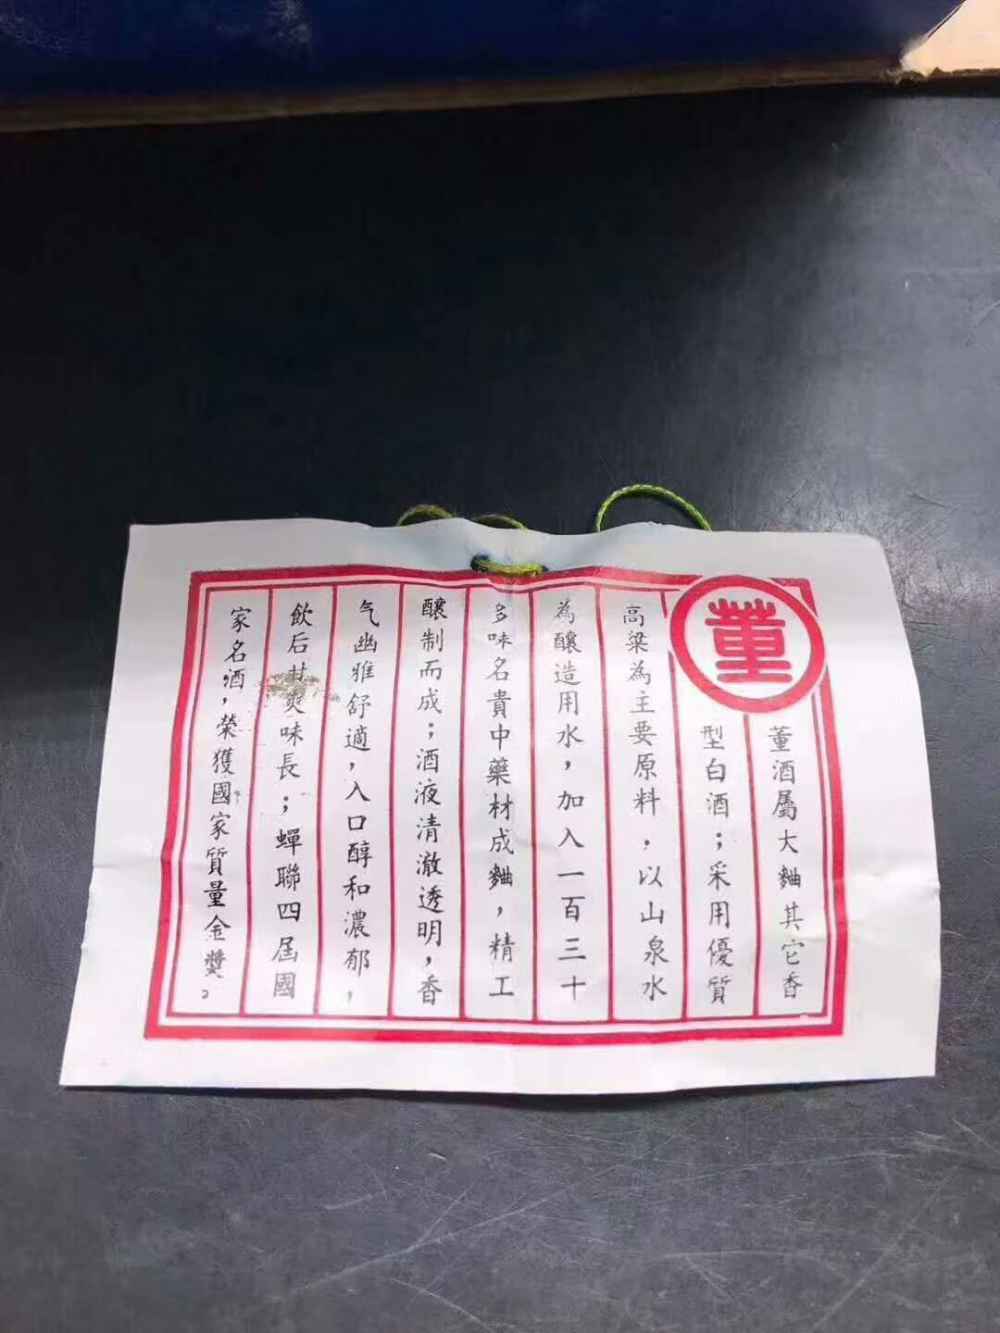 董
董酒屬大麯其它香
型白酒；采用優質
高梁為主要原料，以山泉水
為釀造用水，加入一百三十
多味名貴中藥材成麯，精工
釀制而成；酒液清澈透明，香
气幽雅舒適，入口醇和濃郁，
飲后甘爽味長；蟬聯四屆國
家名酒，榮獲國家質量金獎。